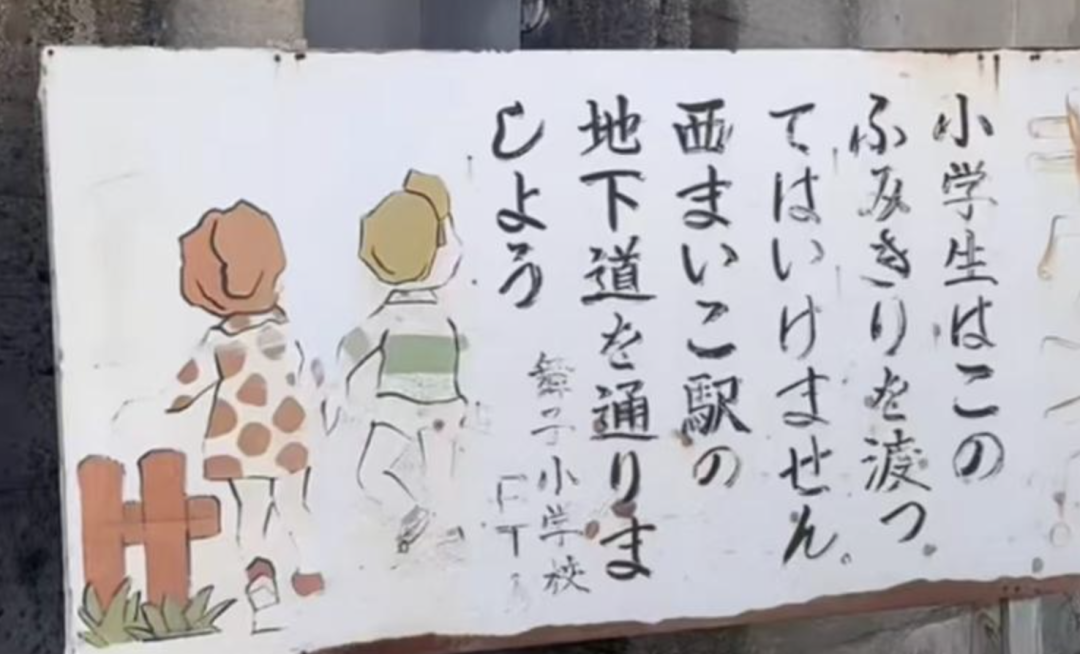 小学生はこの
ふみきりを渡っ
てはいけません。
西まいこ駅の
地下道を通りま
しょう
舞子小学校
PTA